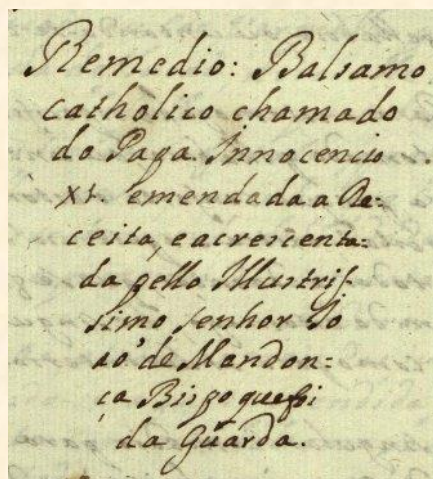 Remedio: Balsamo
catholico chamado
do Papa Innocencio
XI. emendada a Re=
ceita, e acrescenta=
da pello Illustris=
simo senhor Jo
aõ de Mendon=
ça Bispo que foi
da Guarda.